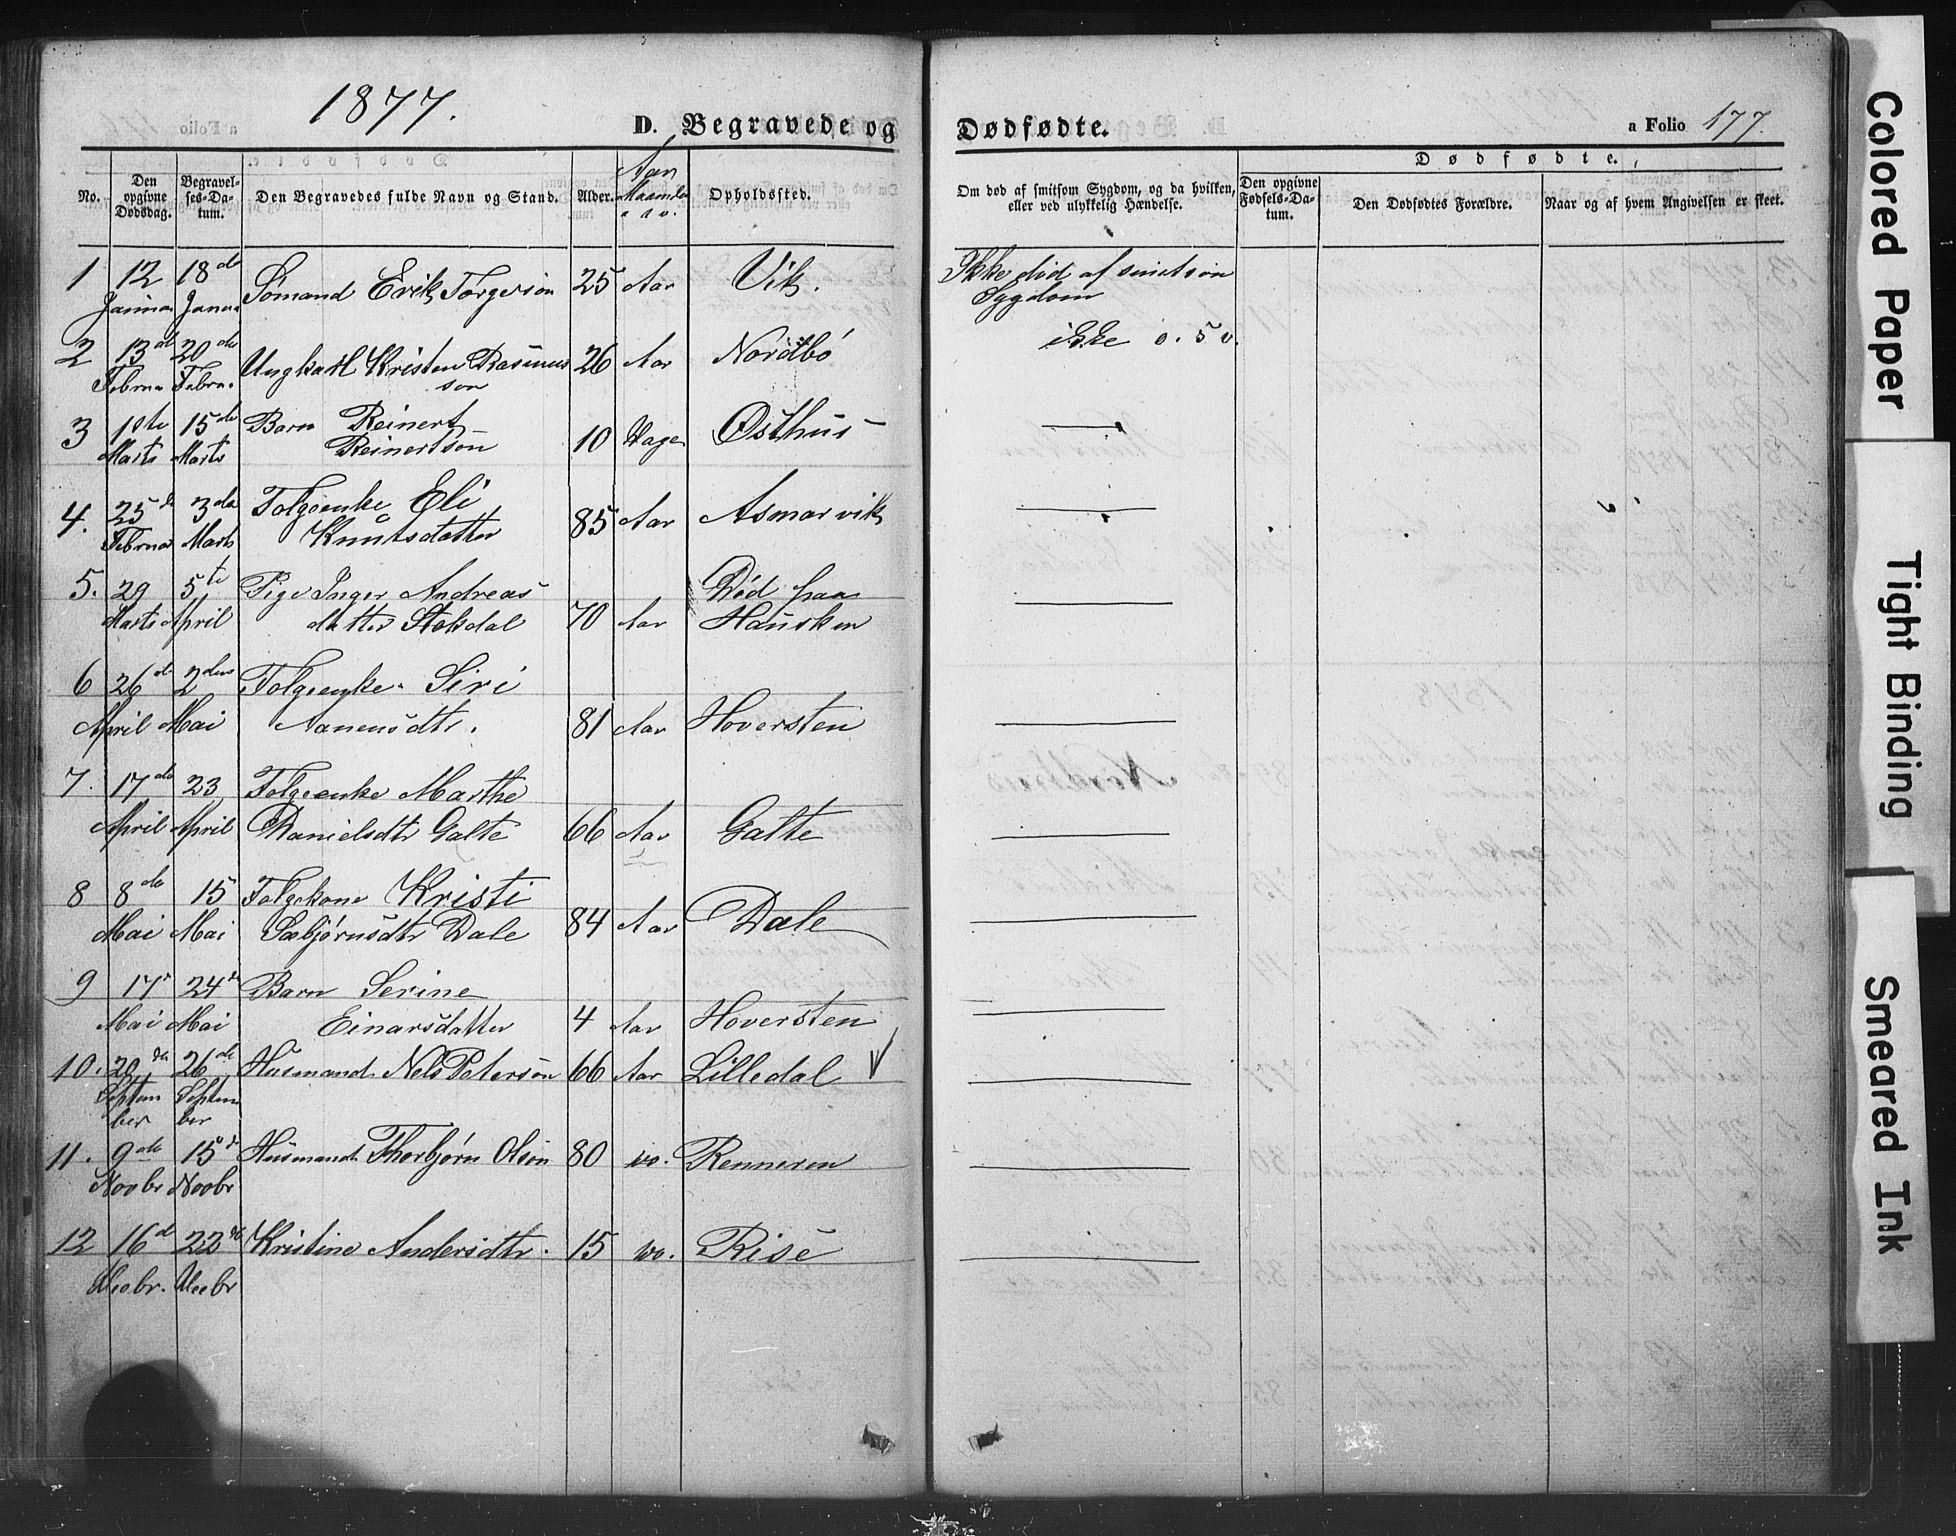 1877.
D. Begravede og Dødfødte.
a Folio 177.
Dødfødte.
No.
Den opgivne Dødsdag.
Begravelses-Datum.
Den Begravedes fulde Navn og Stand.
Alder.
Aar Maaneder o s v.
Opholdssted.
Om død af smitsom Sygdom, og da hvilken, eller ved ulykkelig Hændelse.
Den opgivne Fødsels-Datum.
Den Dødfødtes Forældre.
Naar og af hvem Angivelsen er skeet.
1 12 18de Sømand Erik Torgerson 25 Aar Vik. Ikke död af smitsom
Januar Janua Sygdom
2 13de 20de Ungkarl Kristen Rasmus 26 Aar Nordbö ikke o. s v.
Februa Febru. son
3 10te 15de Barn Reinert
Marts Marts Reinertson 10 Dage Østhus
4. 25d 3die Folgeenke Eli
Februar Marts Knutsdatter 85 Aar Asmarvik
5. 29 5te Pige Inger Andreas Död paa
Marts April datter Stokdal 70 Aar Hausken
6 26de 2den Folgeenke Siri
April Mai Aanensdtr. 81 Aar Hoversten
7. 17de 23 Folgeenke Marthe
April April Danielsdtr Galte 66 Aar Galte
8 8de 15 Folgekone Kristi
Mai Mai Sæbjørnsdtr Dale 84 Aar Dale
9 17d 24d Barn Serine
Mai Mai Einarsdatter 4 Aar Hoversten
10. 20de 26de Husmand Nels Peterson 66 Aar Lilledal
Septem Septem
ber ber
11. 9de 15d Husmand Thorbjørn Olson 80 do. Renneren
Novbr Novbr
12 16d 22de Kristine Andersdtr. 15 do. Rise
Decbr. Decbr
Colored Paper
Tight Binding
Smeared Ink